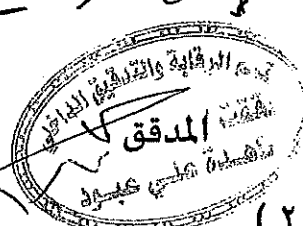 قسم الرقابة والتدقيق الداخلي
دققت
المدقق
علي عبود
(٢